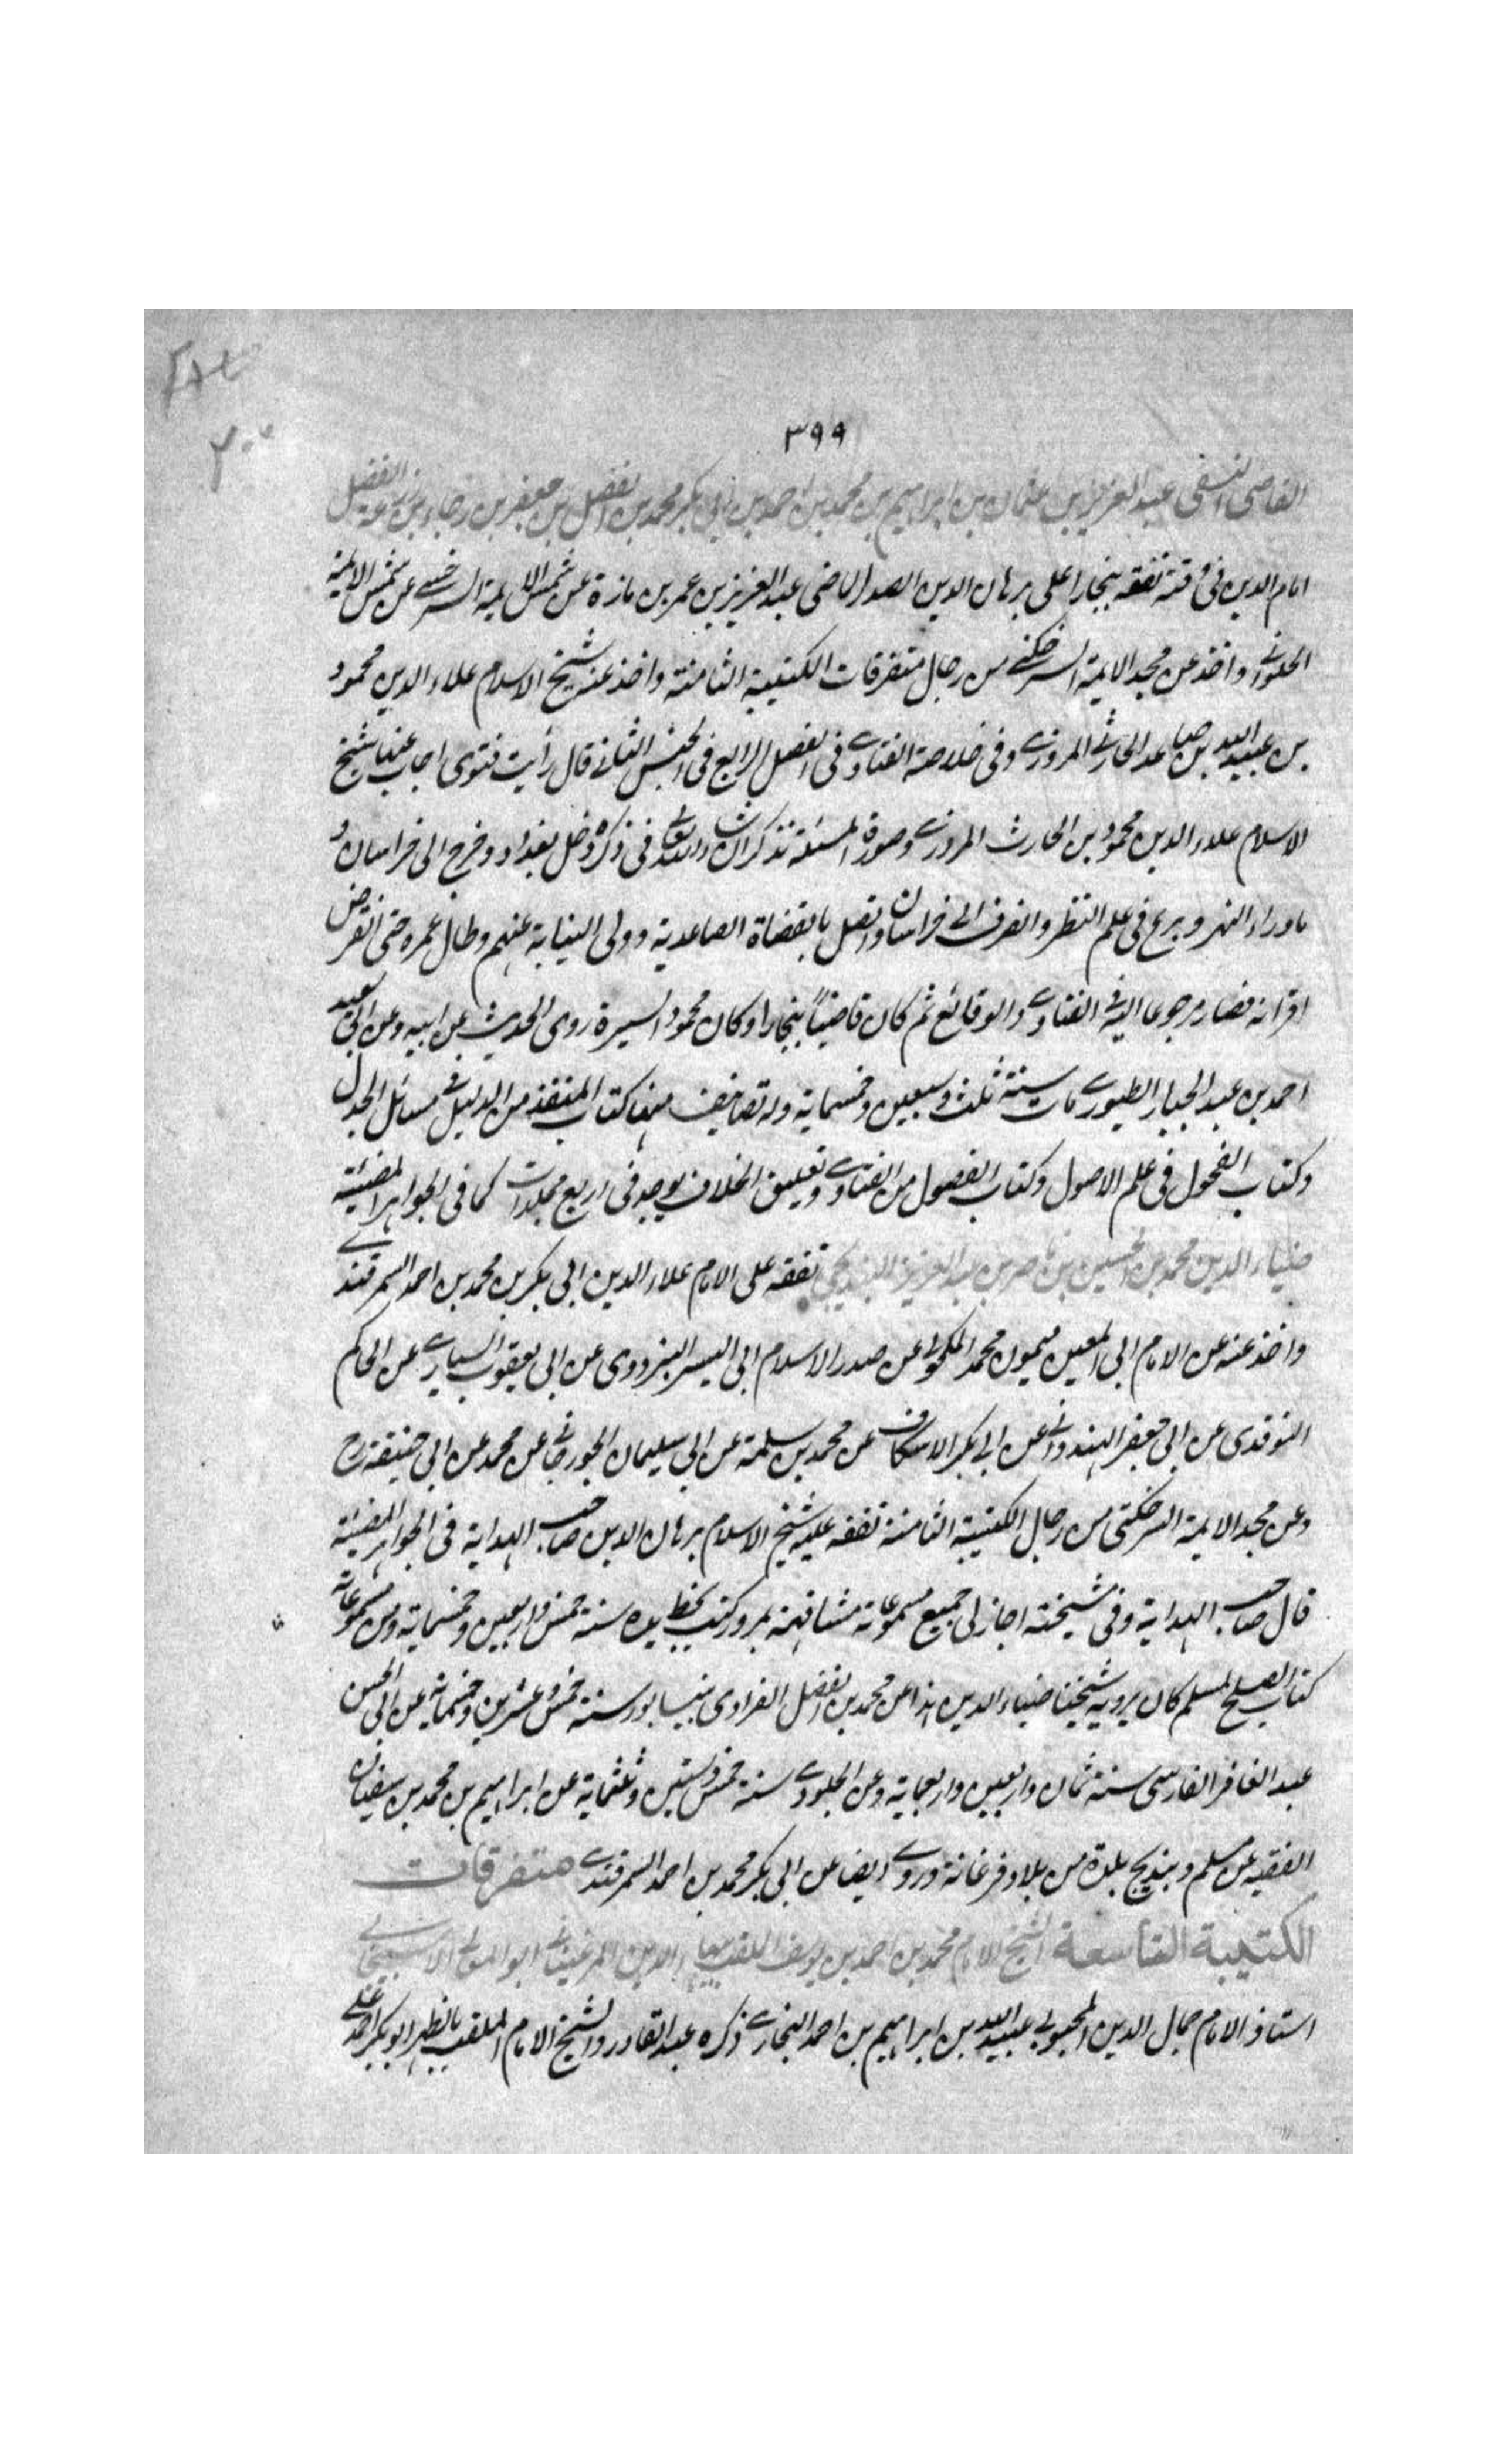 ٣٩٩
القاضى النسفى عبد العزيز بن عثمان بن ابراهيم بن محمد بن احمد بن ابى بكر محمد بن الفضل بن جعفر بن رجاء بن زرعة الفضل
امام الدين فى وقته تفقه ببخارا على برهان الدين الصدر الماضى عبد العزيز بن عمر بن مازة عن شمس الايمة السرخسى عن شمس الايمة
الحلوانى واخذ عن مجد الايمة السرخكتى من رجال متفرقات الكتيبة الثامنة واخذ عنه شيخ الاسلام علاء الدين محمود
بن عبيد الله بن صاعد الحارثى المروزى وفى خلاصة الفتاوى فى الفصل الرابع فى الجنس الثانى قال رأيت فتوى اجاب عنها شيخ
الاسلام علاء الدين محمود بن الحارث المروزى وصورة المسئلة تذكر ان شاء الله تعالى فى ذكره دخل بغداد وخرج الى خراسان و
ماوراء النهر وبرع فى علم النظر وانصرف الى خراسان واتصل بالقضاة الصاعدية وولى النيابة عنهم وطال عمره حتى انقرض
اقرانه فصار مرجوعا اليه فى الفتاوى والوقائع ثم كان قاضيًا ببخارا وكان محمود السيرة روى الحديث عن ابيه وعن ابى سعيد
احمد بن عبد الجبار الطيورى مات سنة ثلث وسبعين وخمسماية وله تصانيف منها كتاب المنقذ من الدليل فى مسائل الجدل
وكتاب الفحول فى علم الاصول وكتاب الفصول من الفتاوى وتعليق الخلاف يوجد فى اربع مجلدات كما فى الجواهر المضيئة
ضياء الدين محمد بن الحسين بن ناصر بن عبد العزيز البنديجى تفقه على الامام علاء الدين ابى بكر بن محمد بن احمد السمرقندى
واخذ عنه عن الامام ابى المعين ميمون محمد المكحولى عن صدر الاسلام ابى اليسر البزدوى عن ابى يعقوب السيارى عن الحاكم
النوقدى عن ابى جعفر الهندوانى عن ابى بكر الاسكاف عن محمد بن سلمة عن ابى سليمان الجورجانى عن محمد عن ابى حنيفة رح
وعن مجد الايمة السرخكتى من رجال الكتيبة الثامنة تفقه عليه شيخ الاسلام برهان الدين صاحب الهداية فى الجواهر المضيئة
قال صاحب الهداية وفى مشيخته اجاز لى جميع مسموعاته مشافهة بمرو وكتب بخط يده سنة خمس واربعين وخمسماية ومن مسموعاته
كتاب الصلح لمسلم كان يرويه شيخنا ضياء الدين هذا عن محمد بن الفضل الفراوى بنيسابور سنة خمس وعشرين وخمسماية عن ابى الحسن
عبد الغافر الفارسى سنة ثمان واربعين واربعماية وعن الجلودى سنة خمس وستين وثلثماية عن ابراهيم بن محمد بن سفيان
الفقيه عن مسلم وبنديج بلدة من بلاد فرغانة وروى ايضا عن ابى بكر محمد بن احمد السمرقندى متفرقات
الكتيبة التاسعة الشيخ الامام محمد بن احمد بن يوسف الملقب بهاء الدين المرغينانى ابو المعالى الاسبيجابى
استاذ الامام جمال الدين المحبوبى عبيد الله بن ابراهيم بن احمد البخارى ذكره عبد القادر والشيخ الامام الملقب بالظهير ابو بكر احمد بن على